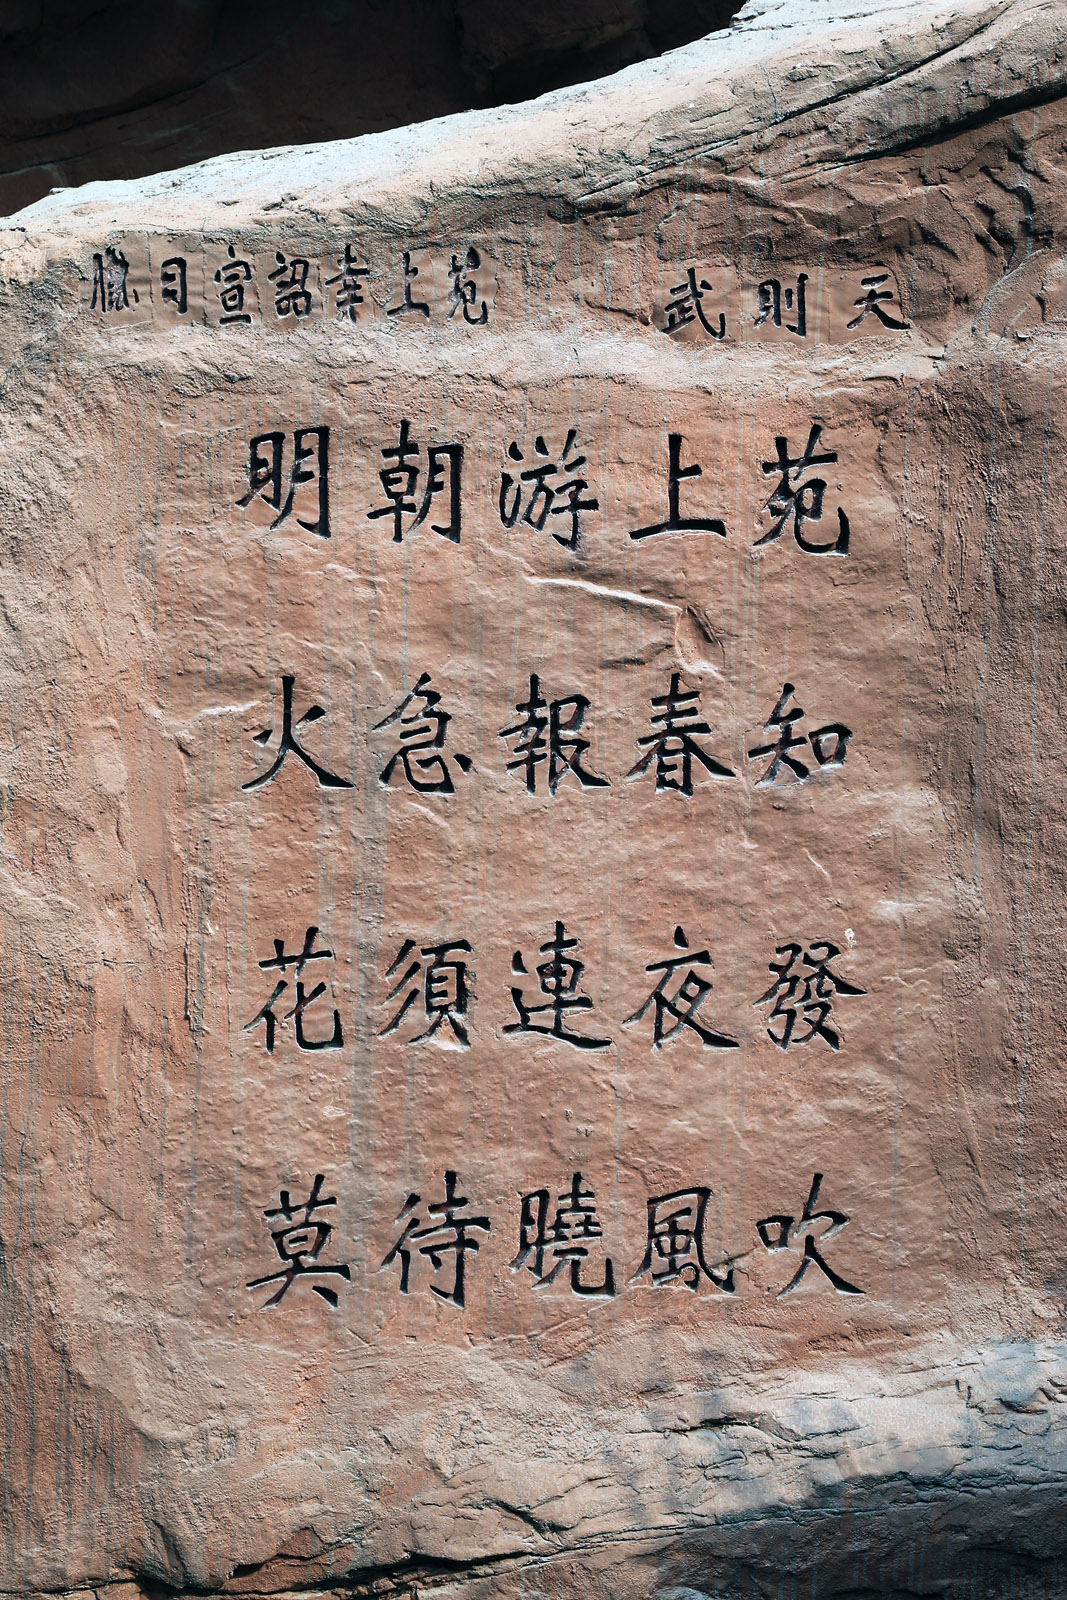 臘日宣詔幸上苑 武則天
明朝游上苑
火急報春知
花須連夜發
莫待曉風吹